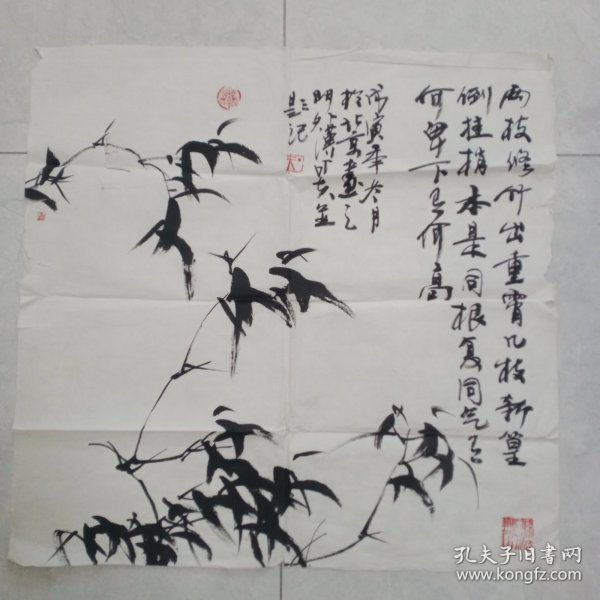 两枝修竹出重霄几枝新篁
倒挂梢本是同根复同气有
何卑下有何高
丙寅年冬月
于北京画之
题记
孔夫子旧书网
www.kongfz.com